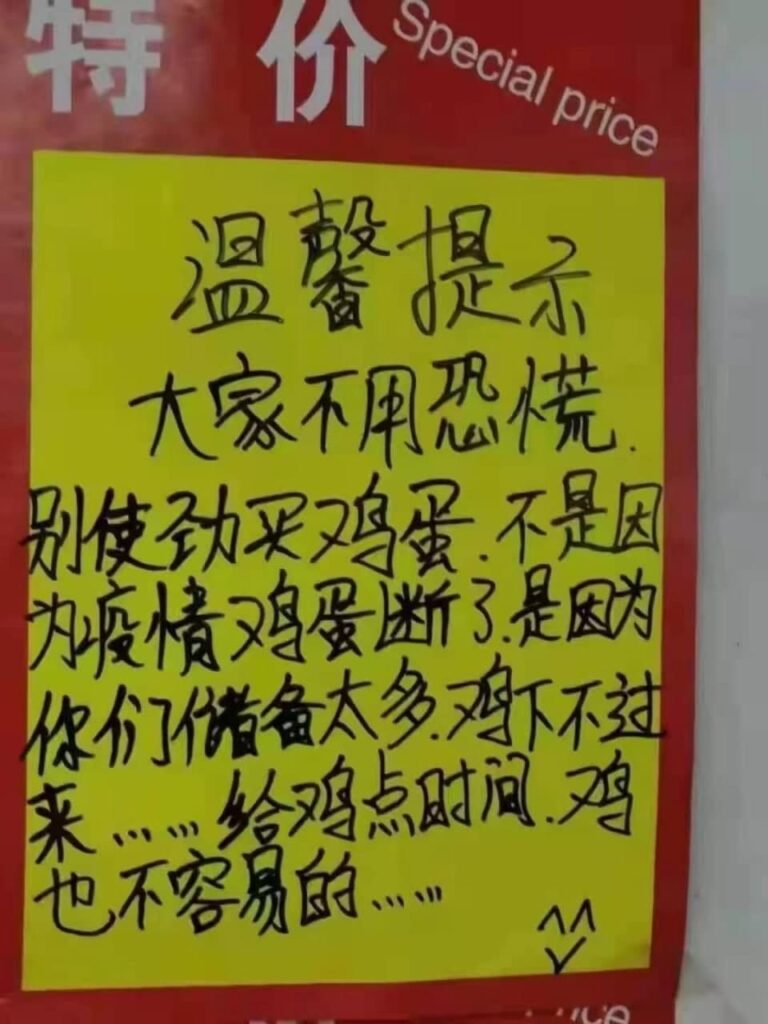 特价
Special price
温馨提示
大家不用恐慌.
别使劲买鸡蛋.不是因
为疫情鸡蛋断了.是因为
你们储备太多.鸡下不过
来……给鸡点时间.鸡
也不容易的……